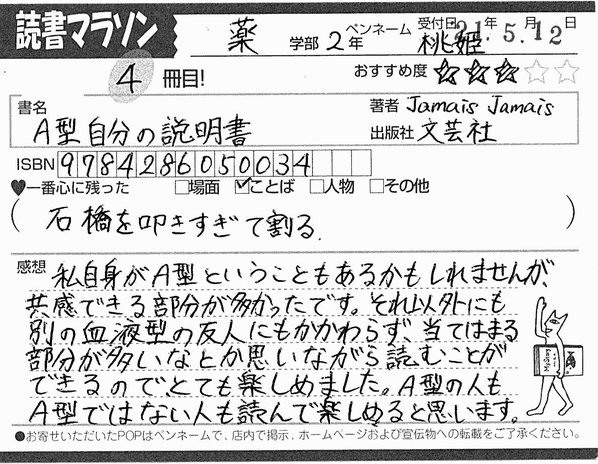 読書マラソン
薬 学部 2年 ペンネーム 桃姫 受付日 21年5月12日
4 冊目! おすすめ度 ★★★☆☆
書名 A型自分の説明書
著者 Jamais Jamais
出版社 文芸社
ISBN 9784286050034
♥一番心に残った □場面 ☑ことば □人物 □その他
(石橋を叩きすぎて割る。)
感想 私自身がA型ということもあるかもしれませんが、
共感できる部分が多かったです。それ以外にも
別の血液型の友人にもかかわらず、当てはまる
部分が多いなとか思いながら読むことが
できるので、とても楽しめました。A型の人も
A型ではない人も読んで楽しめると思います。
●お寄せいただいたPOPはペンネームで、店内で掲示、ホームページおよび宣伝物への転載をご了承ください。